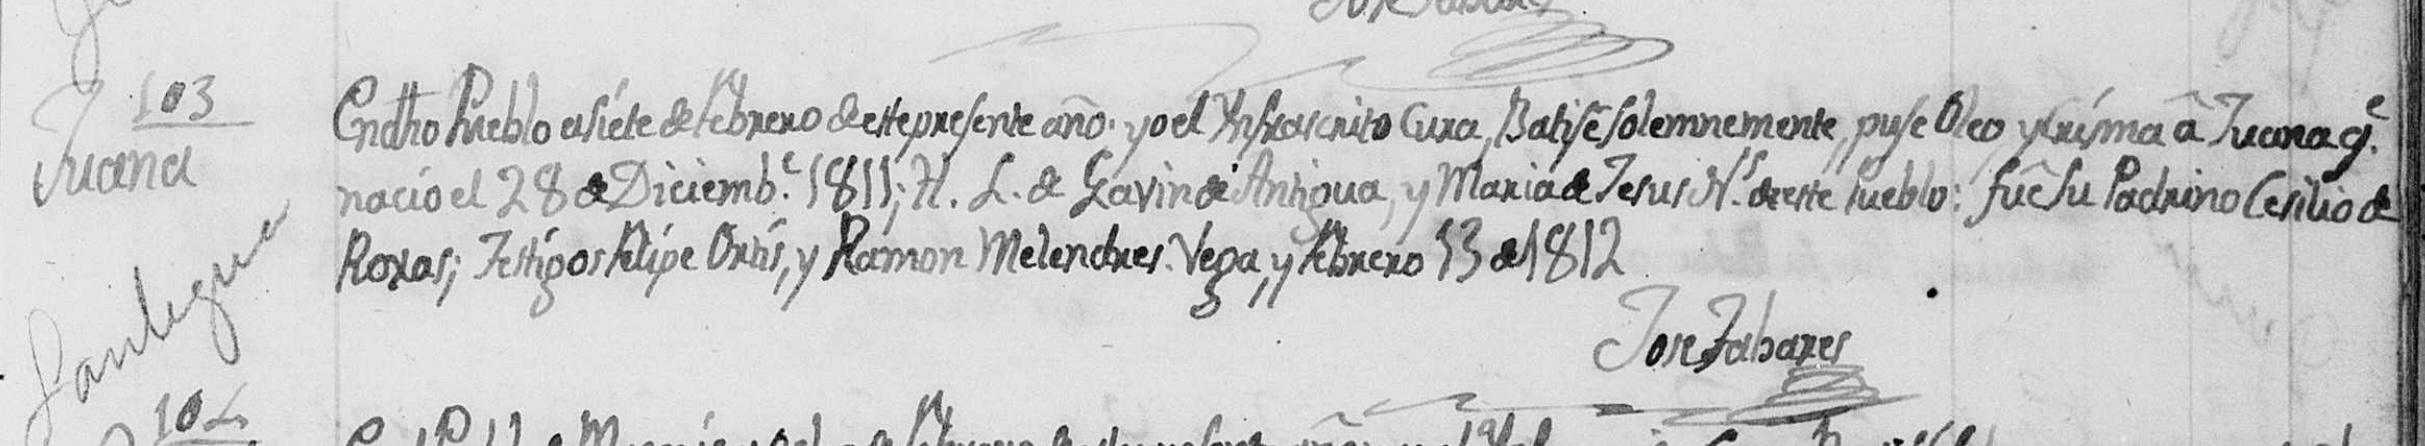 103
Juana
En dho Pueblo a siete de febrero de este presente año. yo el Ynfrascrito Cura, Batisé solemnemente, puse Oleo y Crísma â Juana q.e
nacio el 28 de Diciemb.e 1811; H. L. de Gavin de Antigua, y Maria de Jesus N.s de este Pueblo: fuê su Padrino Cesilio de
Roxas; Testigos Felipe Ortís, y Ramon Melendres. Vega, y febrero 13 de 1812
Jose Tabares
104